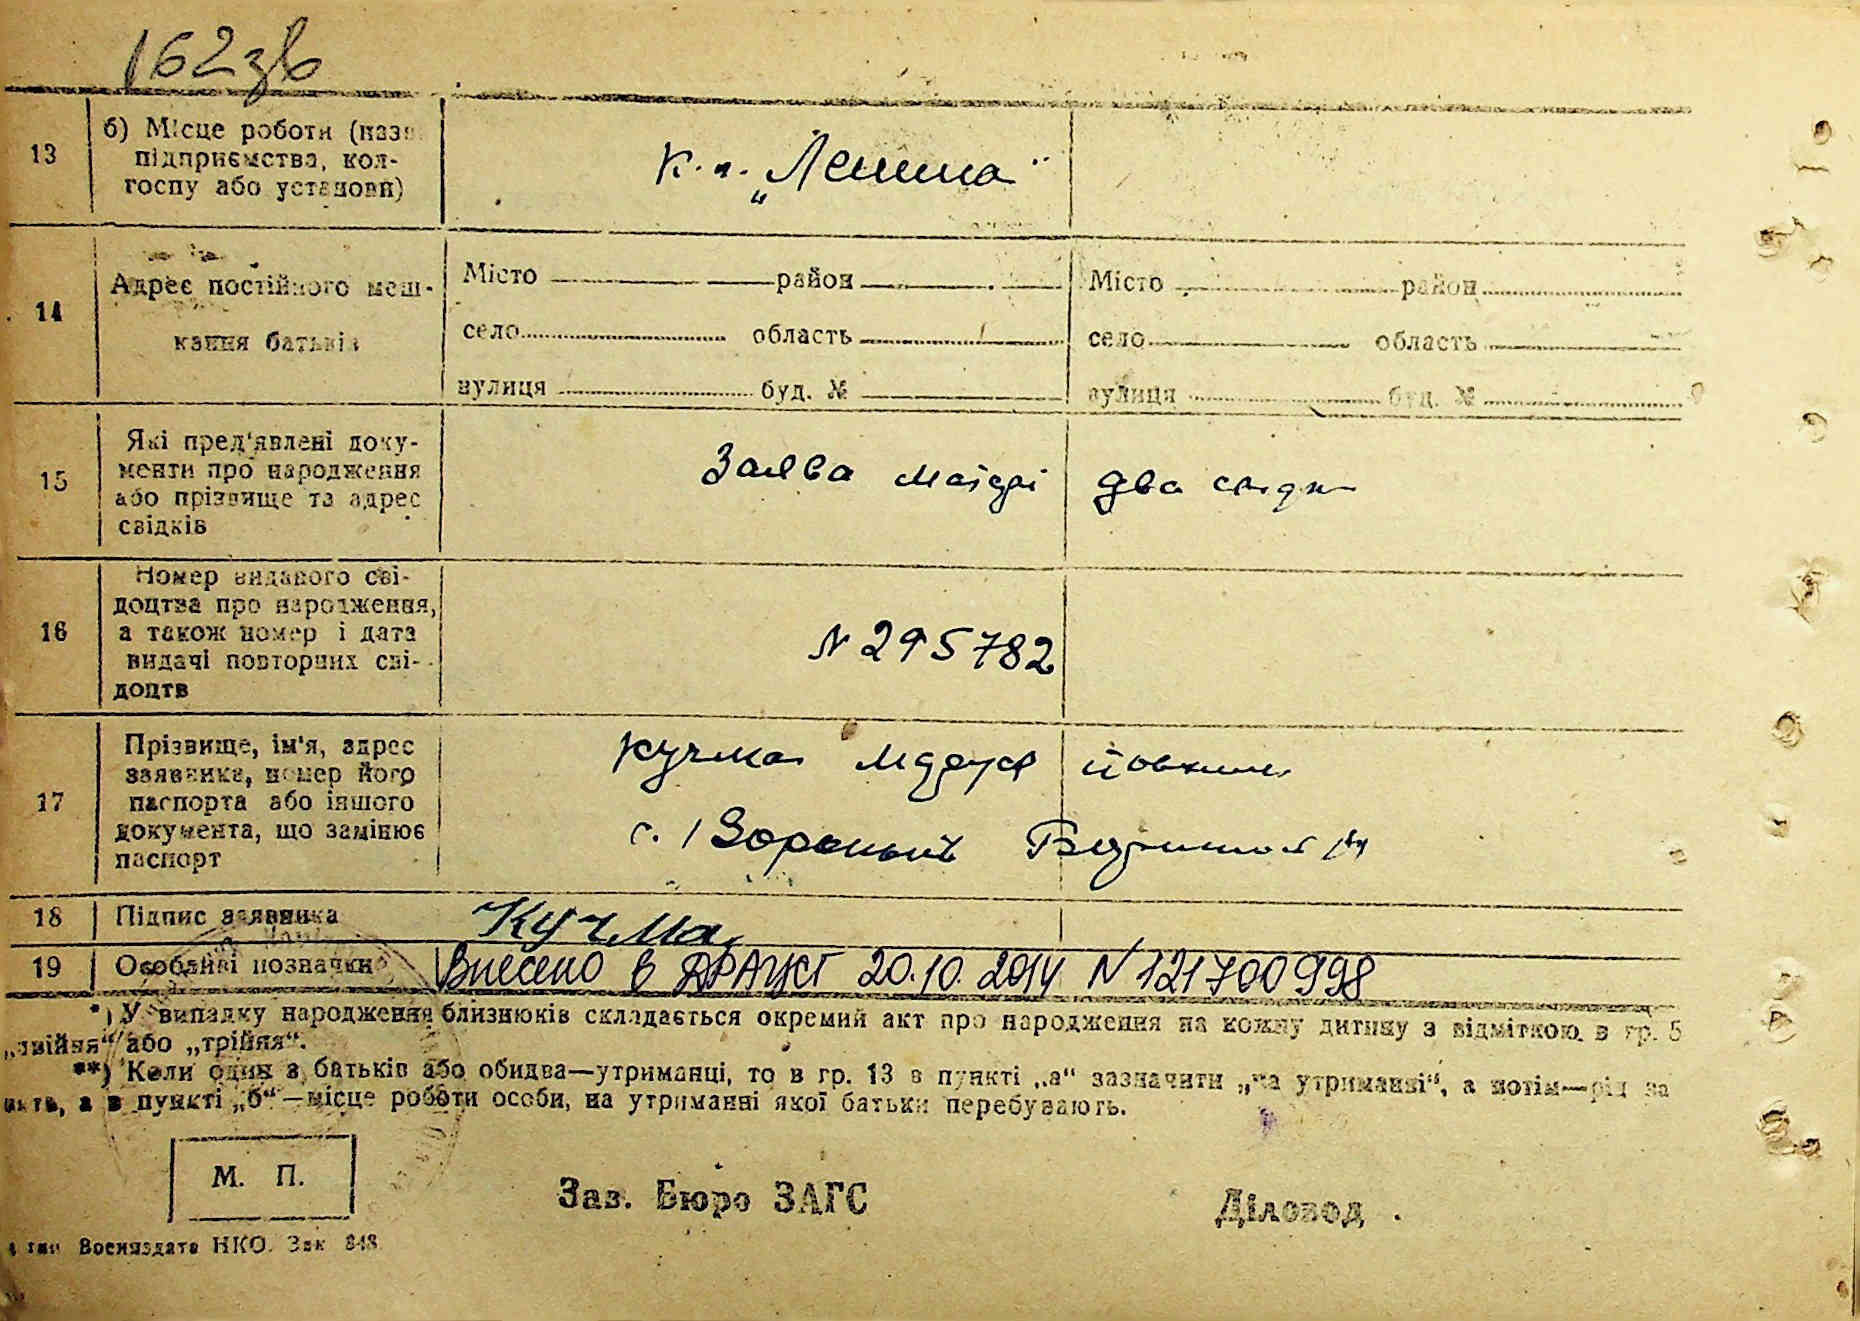 162зв
13
б) Місце роботи (назв
підприємства, кол-
госпу або установи)
к. п. „Ленина"
14
Адрес постійного меш-
кання батьків
Місто район
село область
вулиця буд. №
Місто район
село область
вулиця буд. №
15
Які пред'явлені доку-
менти про народження
або прізвище та адрес
свідків
Заява матері два свідки
16
Номер виданого сві-
доцтва про народження,
а також номер і дата
видачі повторних сві-
доцтв
N 295782
17
Прізвище, ім'я, адрес
заявника, номер його
паспорта або іншого
документа, що замінює
паспорт
Кучма
с.
18 Підпис заявника
Кучма
19 Особливі позначки
Внесено в ДРАЦСГ 20.10.2014 N 121700998
*) У випадку народження близнюків складається окремий акт про народження на кожну дитину з відміткою в гр. 5
„двійня" або „трійня".
**) Коли один з батьків або обидва—утриманці, то в гр. 13 в пункті „а" зазначити „на утриманні", а потім—рід за
нять, а в пункті „б"—місце роботи особи, на утриманні якої батьки перебувають.
М. П.
Зав. Бюро ЗАГС
Діловод
тип Воениздата НКО. Зак 848